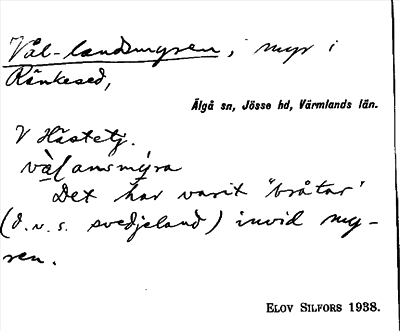 Vål-landsmyren, myr i
Ränkesed,
Älgå sn, Jösse hd, Värmlands län.
V Hästetj.
vål amsmýra
Det har varit "bråtar"
(d.v.s. svedjeland) invid my-
ren.
ELOV SILFORS 1938.